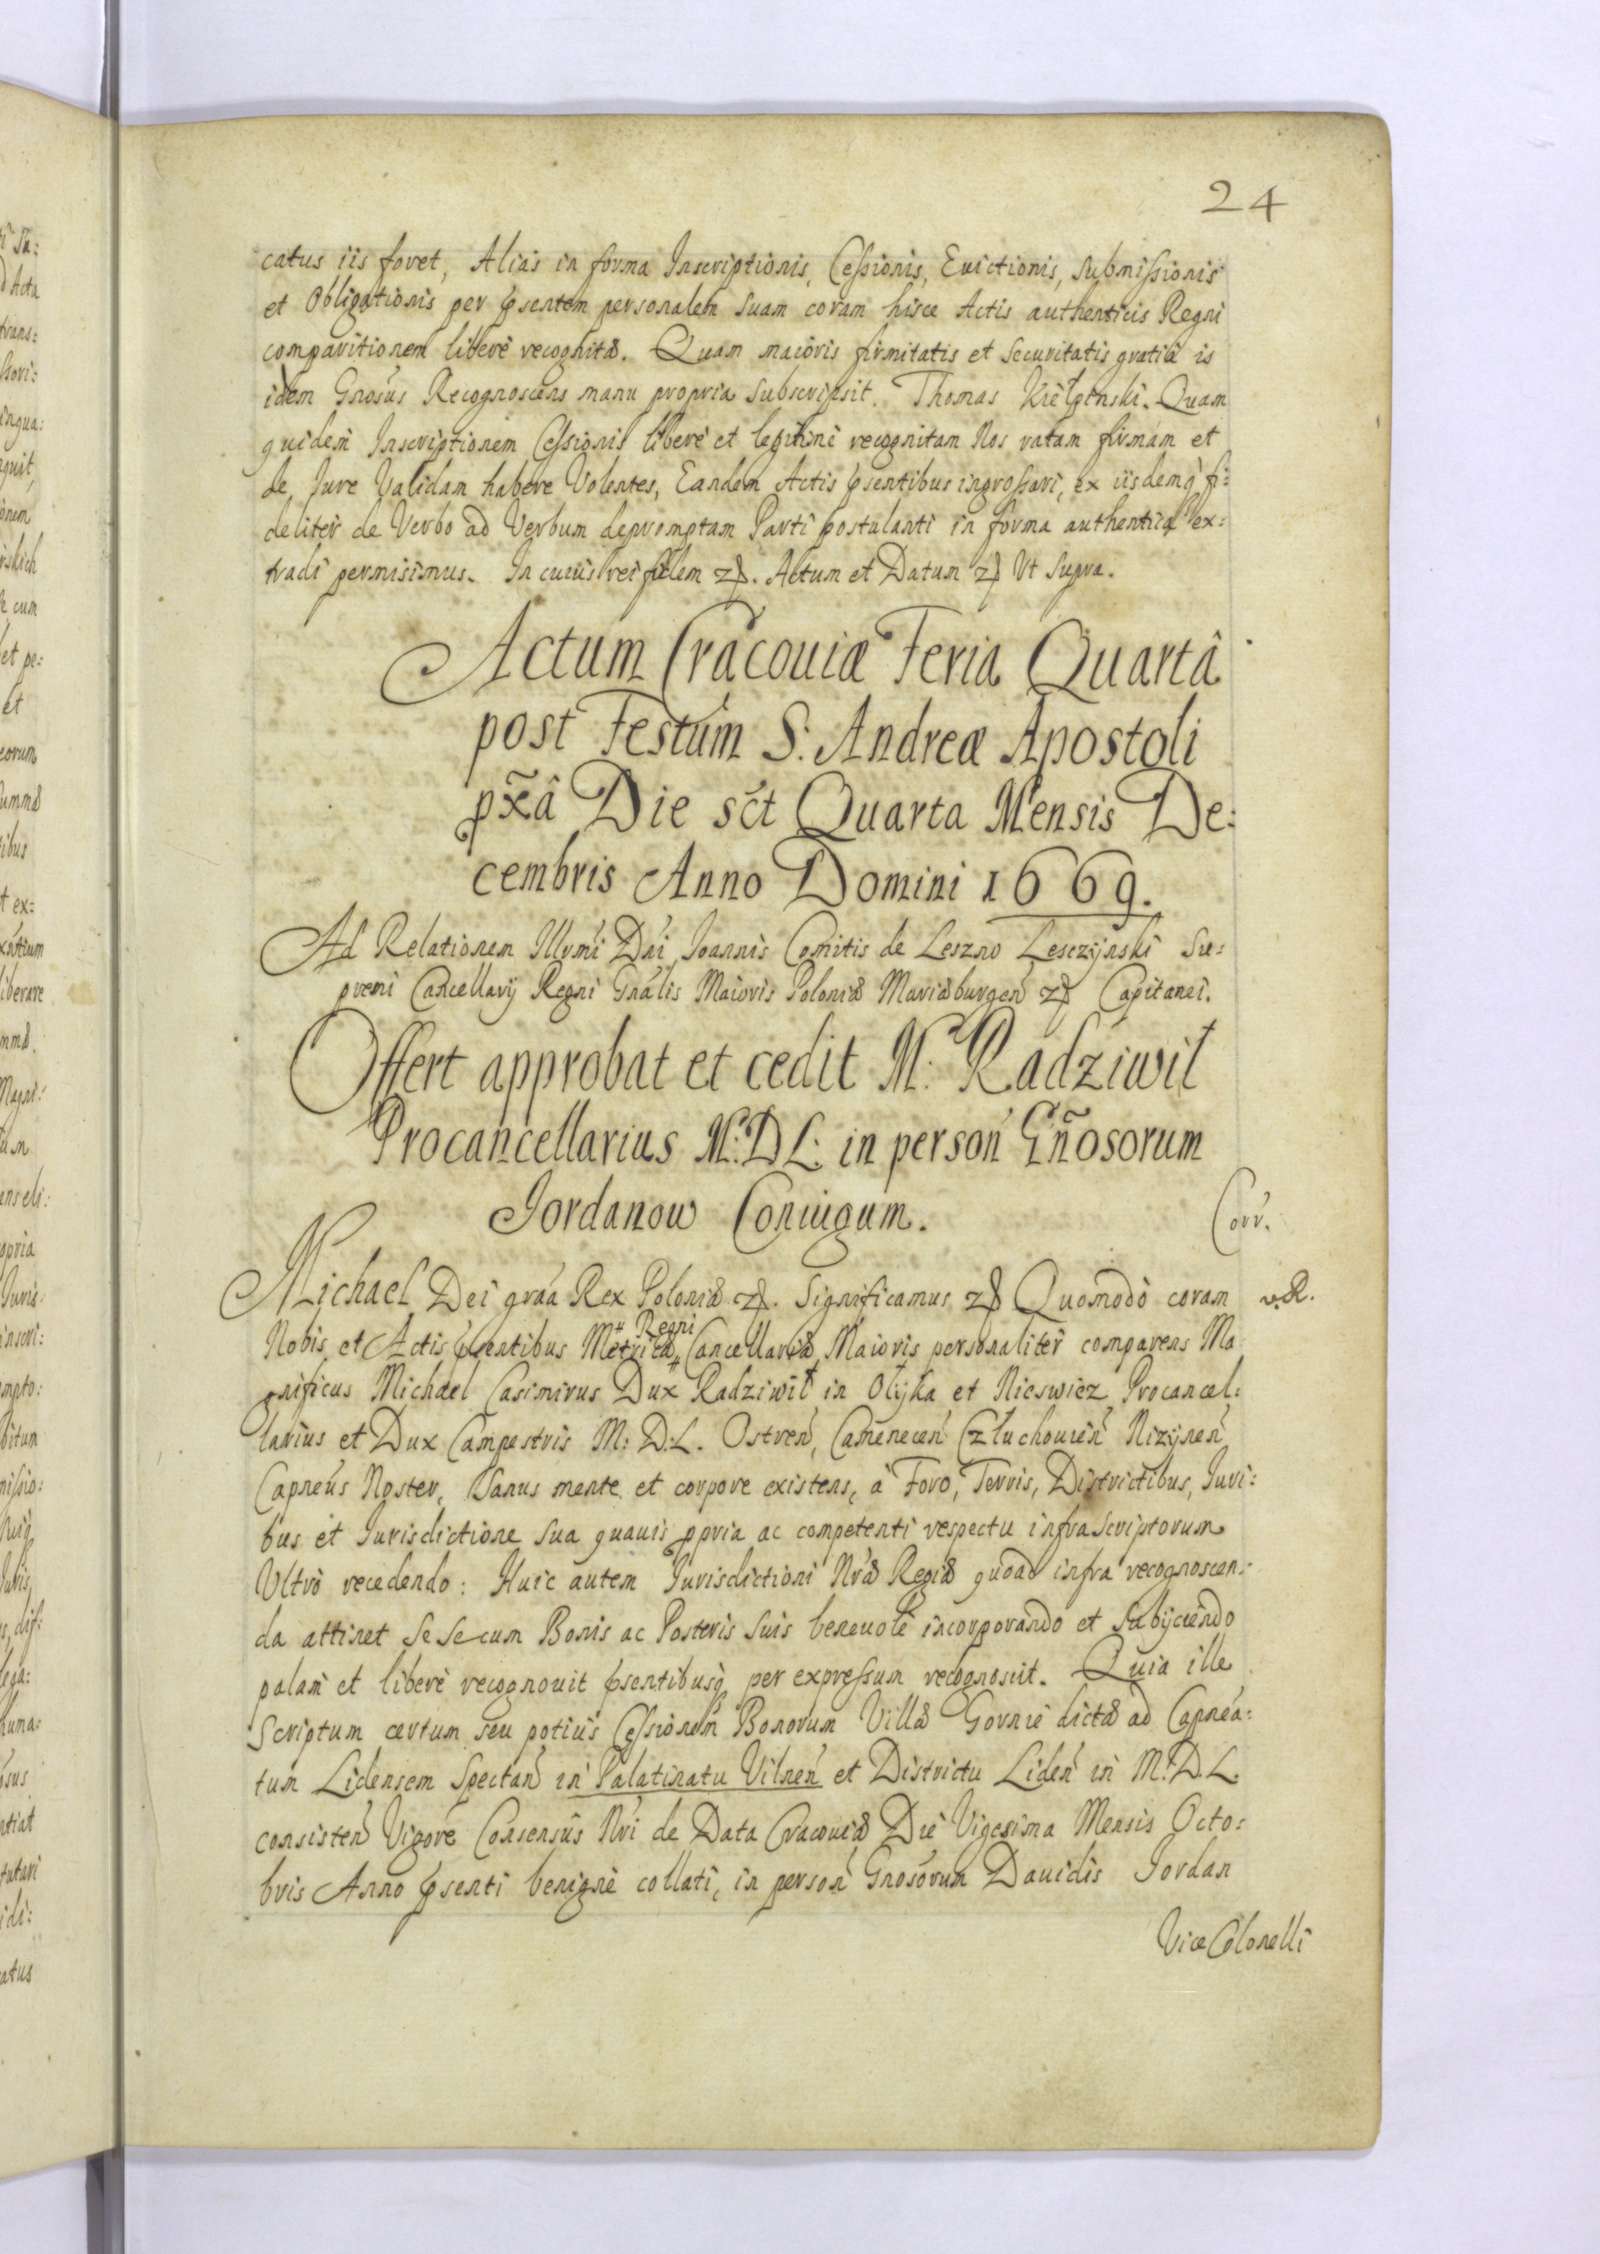 24
catus iis fovet, Alias in forma Inscriptionis, Cessionis, Evictionis, Submissionis
et Obligationis per psentem personalem suam coram hisce Actis authenticis Regni
comparitionem liberè recognitæ. Quam maioris firmitatis et securitatis gratiâ is
idem Gnosus Recognoscens manu propria subscripsit. Thomas Kiełpinski. Quam
quidem Inscriptionem Cessionis liberè et legitimè recognitam Nos ratam firmam et
de Jure Validam habere Volentes, Eandem Actis psentibus ingrossari, ex iisdemq fi:
deliter de Verbo ad Verbum depromptam Parti postulanti in forma authentica ex:
tradi permisimus. In cuius rei fidem &. Actum et Datum & Ut Supra.
Actum Cracoviæ Feria Quartâ
post Festum S: Andreæ Apostoli
pxâ Die sct Quarta Mensis De:
cembris Anno Domini 1669.
Ad Relationem Illvmi Dni Joannis Comitis de Leszno Lesczynski Su:
premi Cancellarij Regni Gnalis Maioris Poloniæ Mariæburgen & Capitanei.
Offert approbat et cedit M: Radziwił
Procancellarius M:D L: in person Gñosorum
Jordanow Coniugum.
Corr.
Michael Dei graa Rex Poloniæ &. Significamus & Quomodò coram
v.R.
Regni
Nobis et Actis psentibus Metricæ Cancellariæ Maioris personaliter comparens Ma
gnificus Michael Casimirus Dux Radziwił in Olyka et Nieswiez Procancel:
larius et Dux Campestris M: D: L. Ostren, Camenecen Człuchouien Nizynen
Capneus Noster, Sanus mente et corpore existens, à Foro, Terris, Districtibus, Iuri:
bus et Jurisdictione sua quauis ppria ac competenti respectu infrascriptorum
Ultrò recedendo: Huic autem Jurisdictioni Nræ Regiæ quoad infra recognoscen:
da attinet Se Se cum Bonis ac Posteris suis beneuolè incorporando et subijciendo
palam et liberè recognouit psentibusq per expressum recognoscit. Quia ille
Scriptum certum seu potius Cessionem Bonorum Villæ Gornie dictæ ad Capnea:
tum Lidensem Spectan in Palatinatu Vilnen et Districtu Liden in M: D. L.
consisten Vigore Consensûs Nri de Data Cracouiæ Die Vigesima Mensis Octo:
bris Anno psenti benignè collati, in person Gnosorum Dauidis Jordan
Vice Colonelli